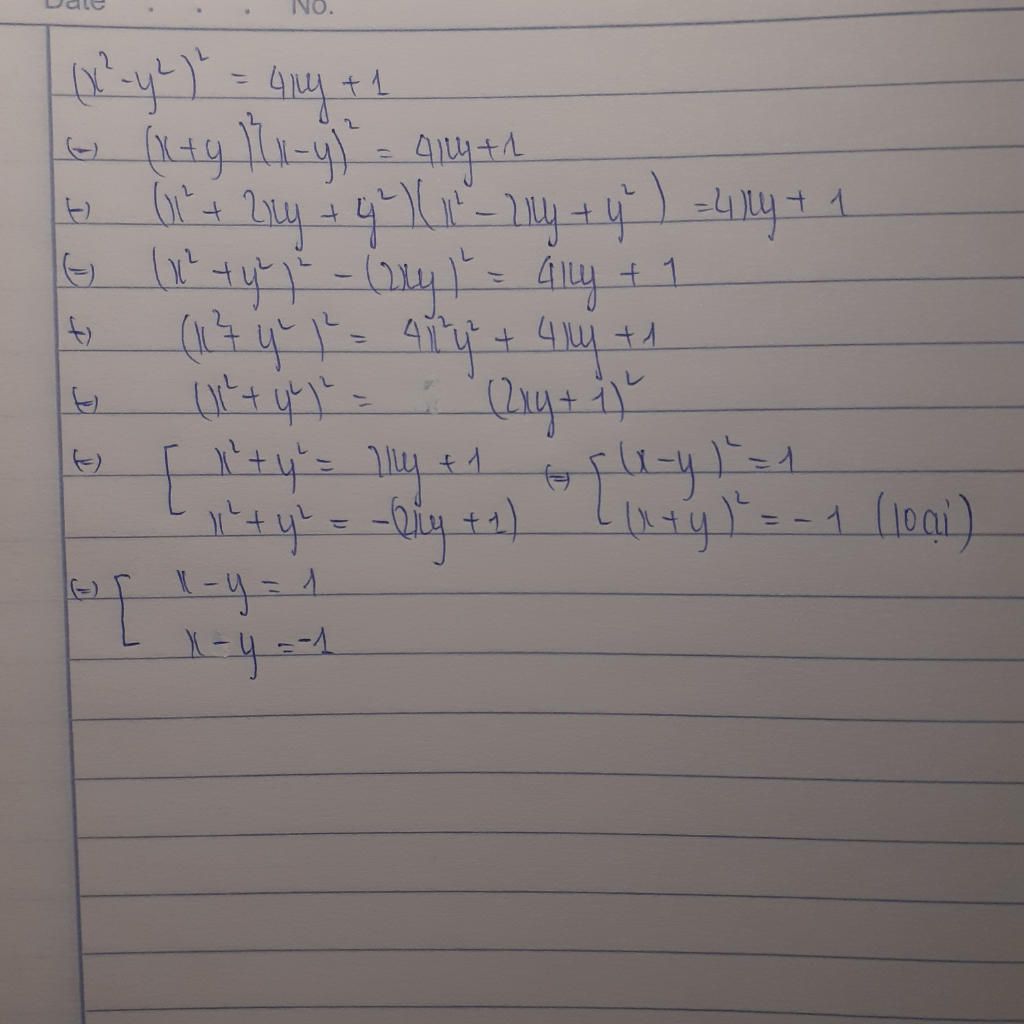 Date . . . No.
(x² - y²)² = 4xy + 1
(=) (x + y)²(x - y)² = 4xy + 1
(=) (x² + 2xy + y²)(x² - 2xy + y²) = 4xy + 1
(=) (x² + y²)² - (2xy)² = 4xy + 1
(=) (x² + y²)² = 4x²y² + 4xy + 1
(=) (x² + y²)² = (2xy + 1)²
(=) [ x² + y² = 2xy + 1 (=) [ (x - y)² = 1
x² + y² = -(2xy + 1) (x + y)² = -1 (loại)
(=) [ x - y = 1
x - y = -1